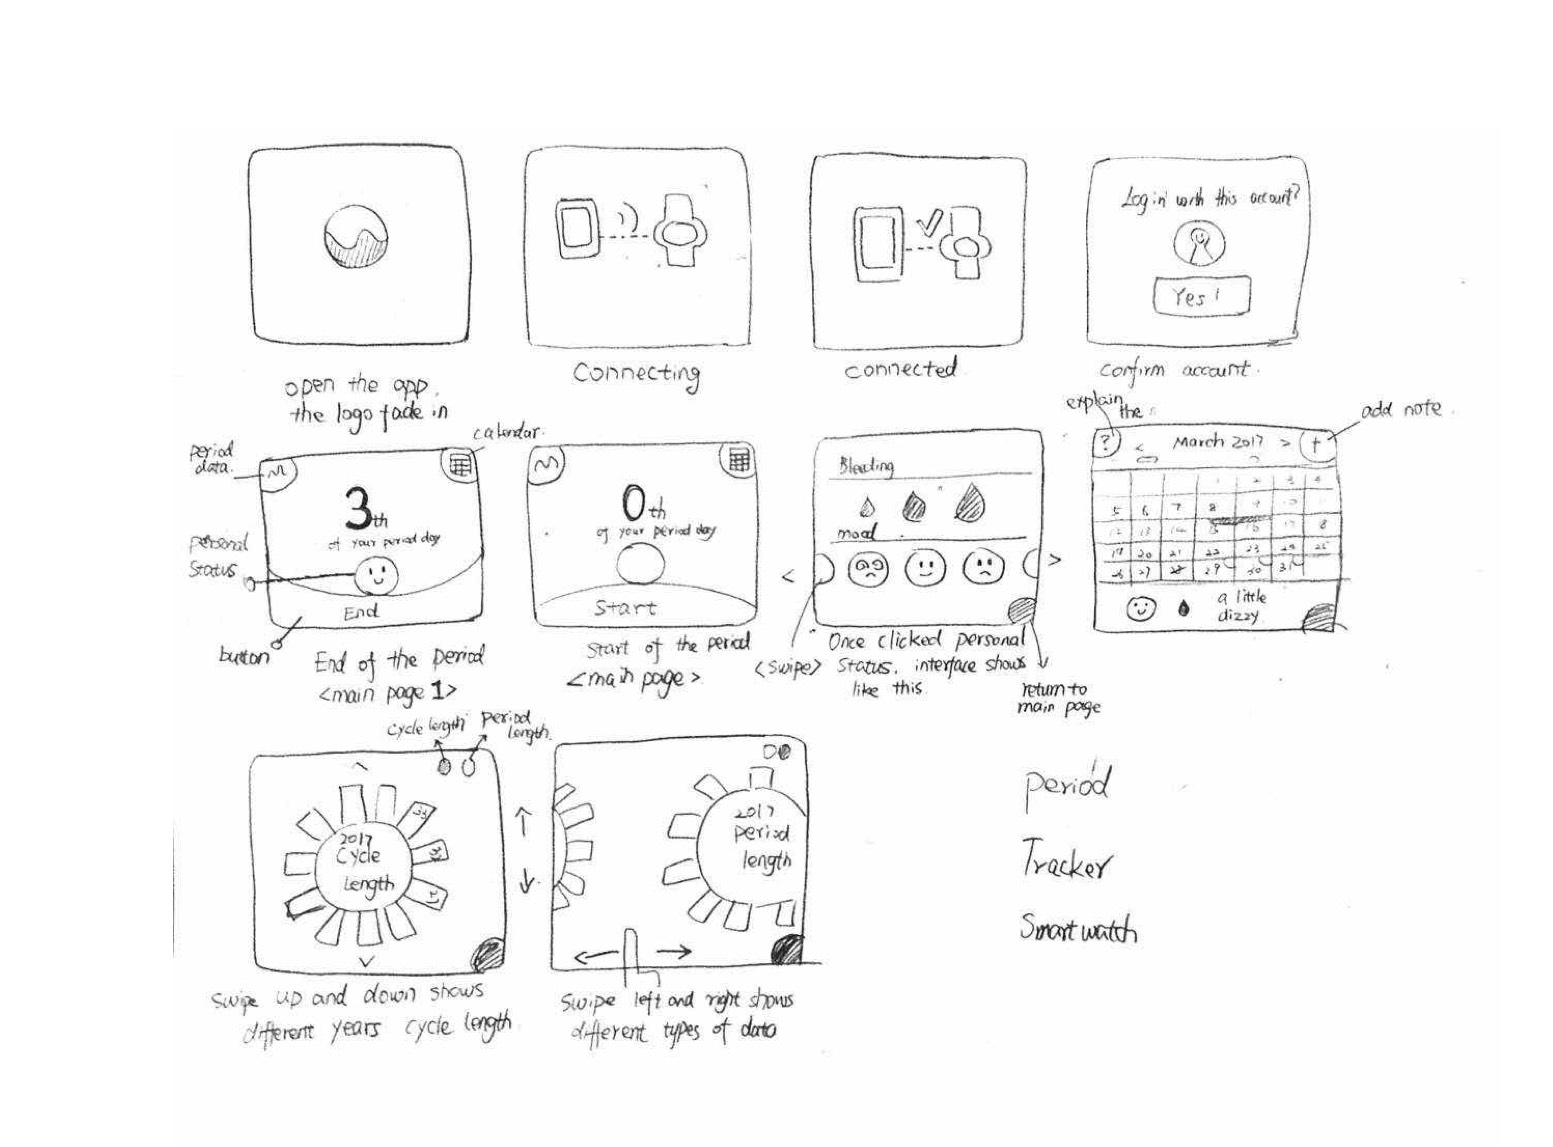 Log in with this account?
Yes!
open the app.
the logo fade in
Connecting
connected
confirm account.
period
data.
calendar.
3th
of your period day
personal
status
End
button
End of the period
<main page 1>
0th
of your period day
Start
Start of the period
<main page>
Bleeding
mood
<
>
<swipe>
Once clicked personal
status, interface shows
like this.
return to
main page
explain
the
add note.
?
< March 2017 > +
1 2 3 4
5 6 7 8 9 10
12 13 14 15 16 17 18
19 20 21 22 23 24 25
26 27 28 29 30 31
a little
dizzy
cycle length
period
length.
2017
Cycle
Length
33
swipe up and down shows
different years cycle length
2017
period
length
swipe left and right shows
different types of data
period
Tracker
Smartwatch